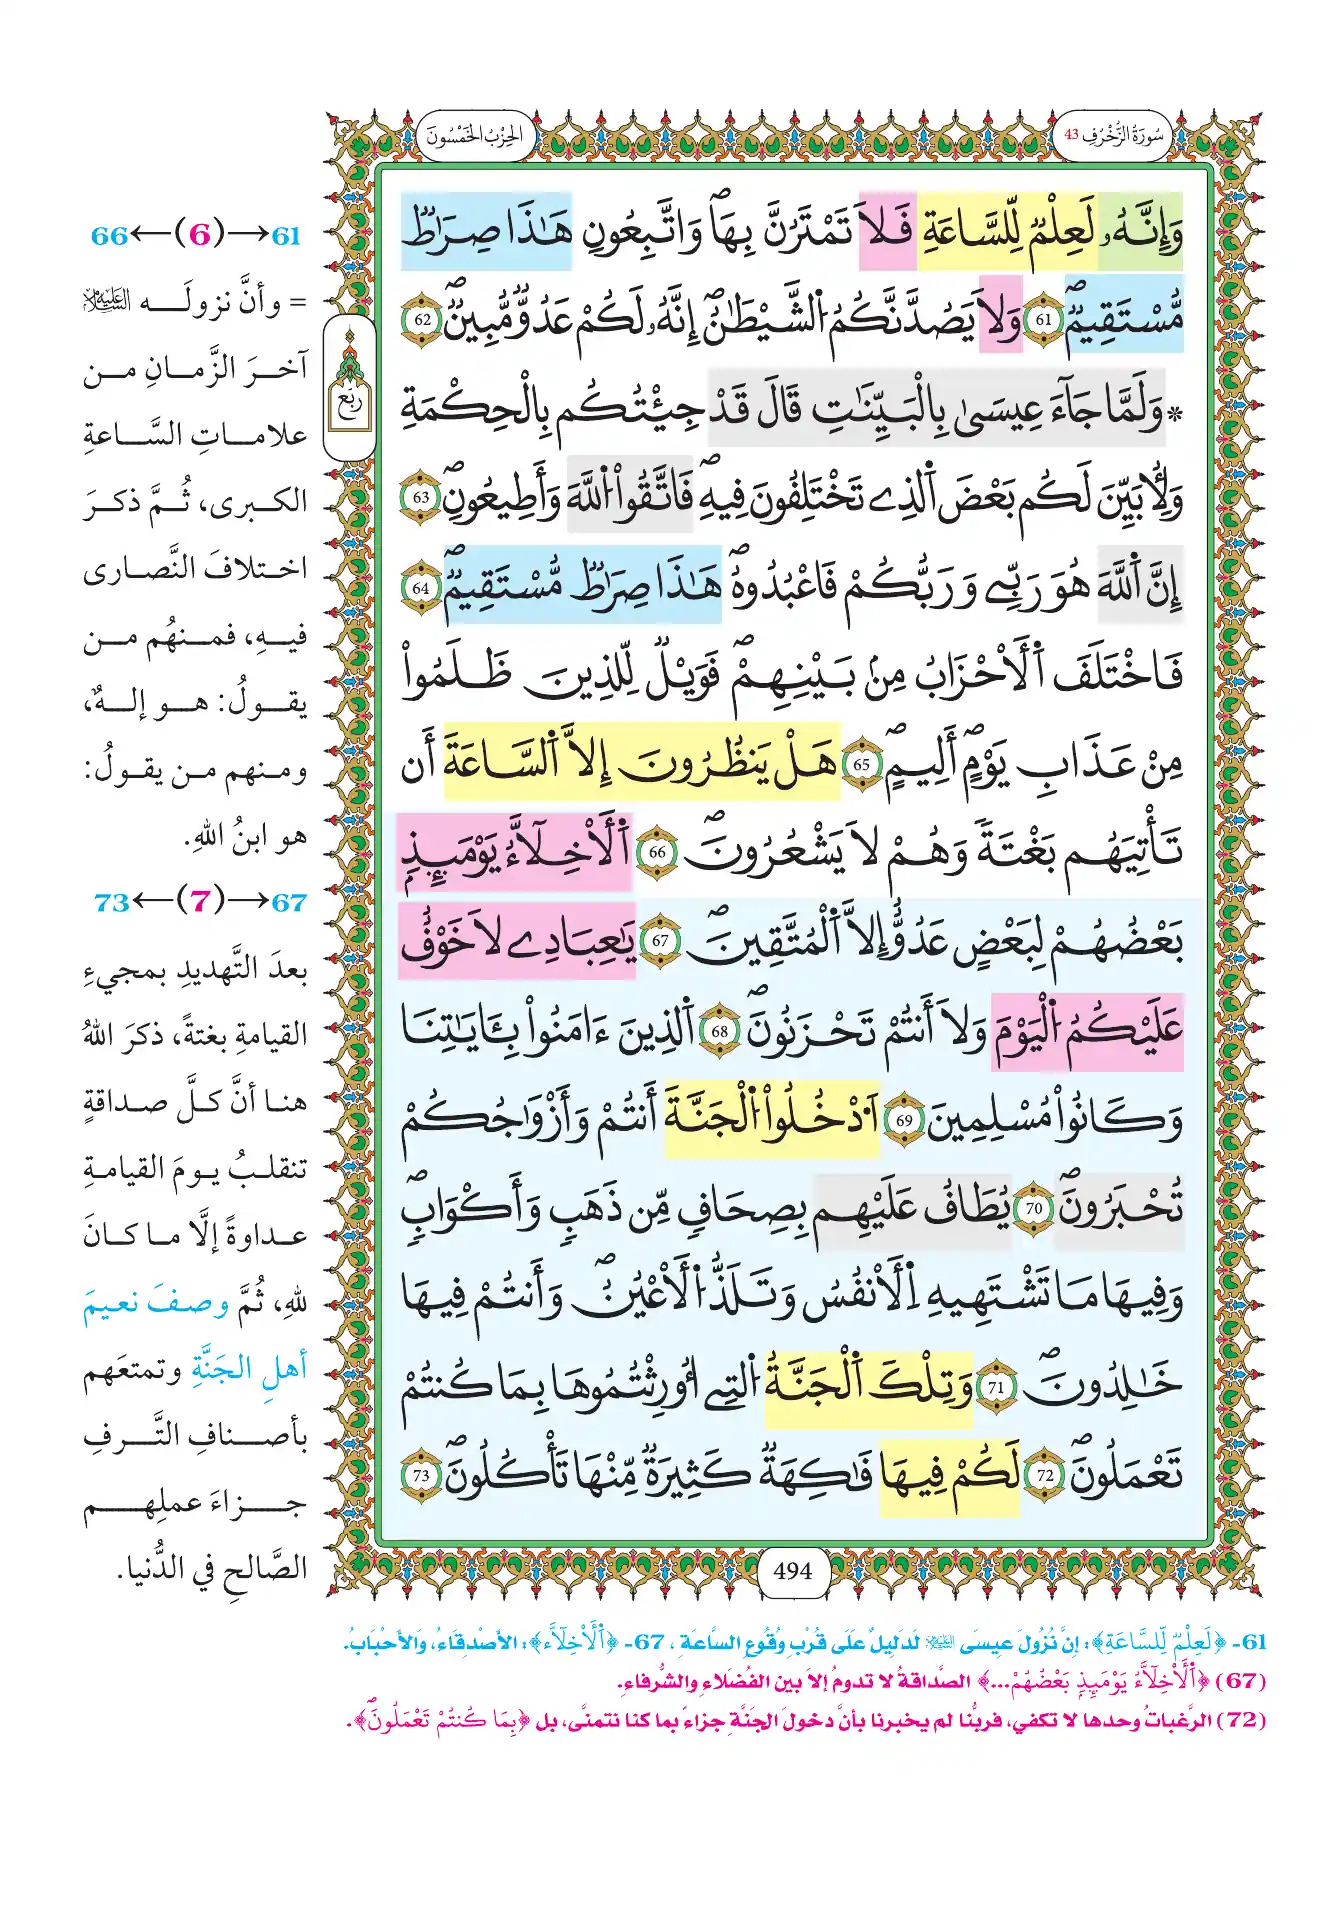 سُورَةُ الزُّخْرُفِ 43
الحِزْبُ الخَمْسُونَ
وَإِنَّهُۥ لَعِلْمٞ لِّلسَّاعَةِ فَلَا تَمْتَرُنَّ بِهَاۖ وَاتَّبِعُونِ هَٰذَا صِرَٰطٞ
مُّسْتَقِيمٞۖ 61 وَلَا يَصُدَّنَّكُمُ اُلشَّيْطَٰنُۖ إِنَّهُۥ لَكُمْ عَدُوّٞ مُّبِينٞۖ 62
* وَلَمَّا جَآءَ عِيسَىٰ بِالْبَيِّنَٰتِ قَالَ قَدْ جِئْتُكُم بِالْحِكْمَةِ
وَلِأُبَيِّنَ لَكُم بَعْضَ اَلذِے تَخْتَلِفُونَ فِيهِۖ فَاتَّقُواْ اُللَّهَ وَأَطِيعُونِۖ 63
إِنَّ اَللَّهَ هُوَ رَبِّے وَرَبُّكُمْ فَاعْبُدُوهُۖ هَٰذَا صِرَٰطٞ مُّسْتَقِيمٞۖ 64
فَاخْتَلَفَ اَلْأَحْزَابُ مِنۢ بَيْنِهِمْۖ فَوَيْلٞ لِّلذِينَ ظَلَمُواْ
مِنْ عَذَابِ يَوْمٍ أَلِيمٍۖ 65 هَلْ يَنظُرُونَ إِلَّا اَلسَّاعَةَ أَن
تَأْتِيَهُم بَغْتَةٗ وَهُمْ لَا يَشْعُرُونَۖ 66 اَلْأَخِلَّآءُ يَوْمَئِذِۢ
بَعْضُهُمْ لِبَعْضٍ عَدُوٌّ إِلَّا اَلْمُتَّقِينَۖ 67 يَٰعِبَادِے لَا خَوْفٌ
عَلَيْكُمُ اُلْيَوْمَ وَلَا أَنتُمْ تَحْزَنُونَۖ 68 اَلذِينَ ءَامَنُواْ بِـَٔايَٰتِنَا
وَكَانُواْ مُسْلِمِينَ 69 اَدْخُلُواْ اُلْجَنَّةَ أَنتُمْ وَأَزْوَٰجُكُمْ
تُحْبَرُونَۖ 70 يُطَافُ عَلَيْهِم بِصِحَافٖ مِّن ذَهَبٖ وَأَكْوَابٖۖ
وَفِيهَا مَا تَشْتَهِيهِ اِلْأَنفُسُ وَتَلَذُّ اُلْأَعْيُنُۖ وَأَنتُمْ فِيهَا
خَٰلِدُونَۖ 71 وَتِلْكَ اَلْجَنَّةُ اُلتِے أُورِثْتُمُوهَا بِمَا كُنتُمْ
تَعْمَلُونَۖ 72 لَكُمْ فِيهَا فَٰكِهَةٞ كَثِيرَةٞ مِّنْهَا تَأْكُلُونَۖ 73
ربع
494
61←(6)→66
= وأنَّ نزولَـه عليه السلام
آخرَ الزَّمانِ من
علاماتِ السَّاعةِ
الكبرى، ثُمَّ ذكرَ
اختلافَ النَّصارى
فيهِ، فمنهُم من
يقولُ: هو إلهٌ،
ومنهم من يقولُ:
هو ابنُ اللهِ.
67←(7)→73
بعدَ التَّهديدِ بمجيءِ
القيامةِ بغتةً، ذكرَ اللهُ
هنا أنَّ كلَّ صداقةٍ
تنقلبُ يومَ القيامةِ
عداوةً إلَّا ما كانَ
للهِ، ثُمَّ وصفَ نعيمَ
أهلِ الجَنَّةِ وتمتعَهم
بأصنافِ التَّرفِ
جزاءَ عملِهم
الصَّالحِ في الدُّنيا.
61- ﴿لَعِلْمٞ لِّلسَّاعَةِ﴾: إنَّ نُزُولَ عِيسَى عليه السلام لَدَلِيلٌ عَلَى قُرْبِ وُقُوعِ السَّاعَةِ، 67- ﴿اَلْأَخِلَّآءُ﴾: الأَصْدِقَاءُ، وَالأَحْبَابُ.
(67) ﴿اَلْأَخِلَّآءُ يَوْمَئِذِۢ بَعْضُهُمْ...﴾ الصَّداقةُ لا تدومُ إلَّا بين الفُضلاءِ والشُّرفاءِ.
(72) الرَّغباتُ وحدها لا تكفي، فربُّنا لم يخبرنا بأنَّ دخولَ الجَنَّةِ جزاءً بما كنا نتمنَّى، بل ﴿بِمَا كُنتُمْ تَعْمَلُونَۖ﴾.